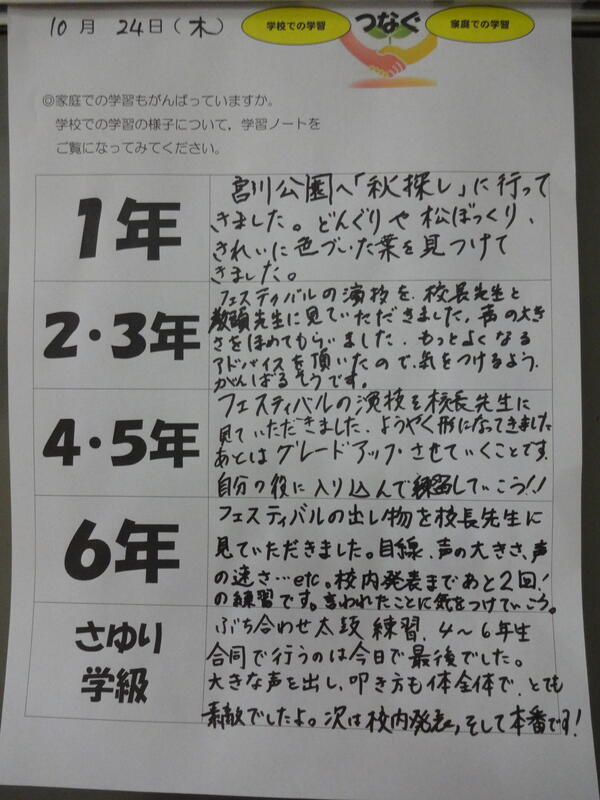 10月 24日(木)
学校での学習 つなぐ 家庭での学習
◎家庭での学習もがんばっていますか。
学校での学習の様子について,学習ノートを
ご覧になってみてください。
1年
宮川公園へ「秋探し」に行って
きました。どんぐりや松ぼっくり、
きれいに色づいた葉を見つけて
きました。
2・3年
フェスティバルの演技を、校長先生と
教頭先生に見ていただきました。声の大き
さをほめてもらいました。もっとよくなる
アドバイスを頂いたので、気をつけるよう、
がんばるそうです。
4・5年
フェスティバルの演技を校長先生に
見ていただきました。ようやく形になってきました。
あとはグレードアップさせていくことです。
自分の役に入り込んで練習していこう!!
6年
フェスティバルの出し物を校長先生に
見ていただきました。目線、声の大きさ、声
の速さ…etc。校内発表まであと2回!
の練習です。言われたことに気をつけていこう。
さゆり
学級
ぶち合わせ太鼓練習、4〜6年生
合同で行うのは今日で最後でした。
大きな声を出し、叩き方も体全体で、とても
素敵でしたよ。次は校内発表、そして本番です!